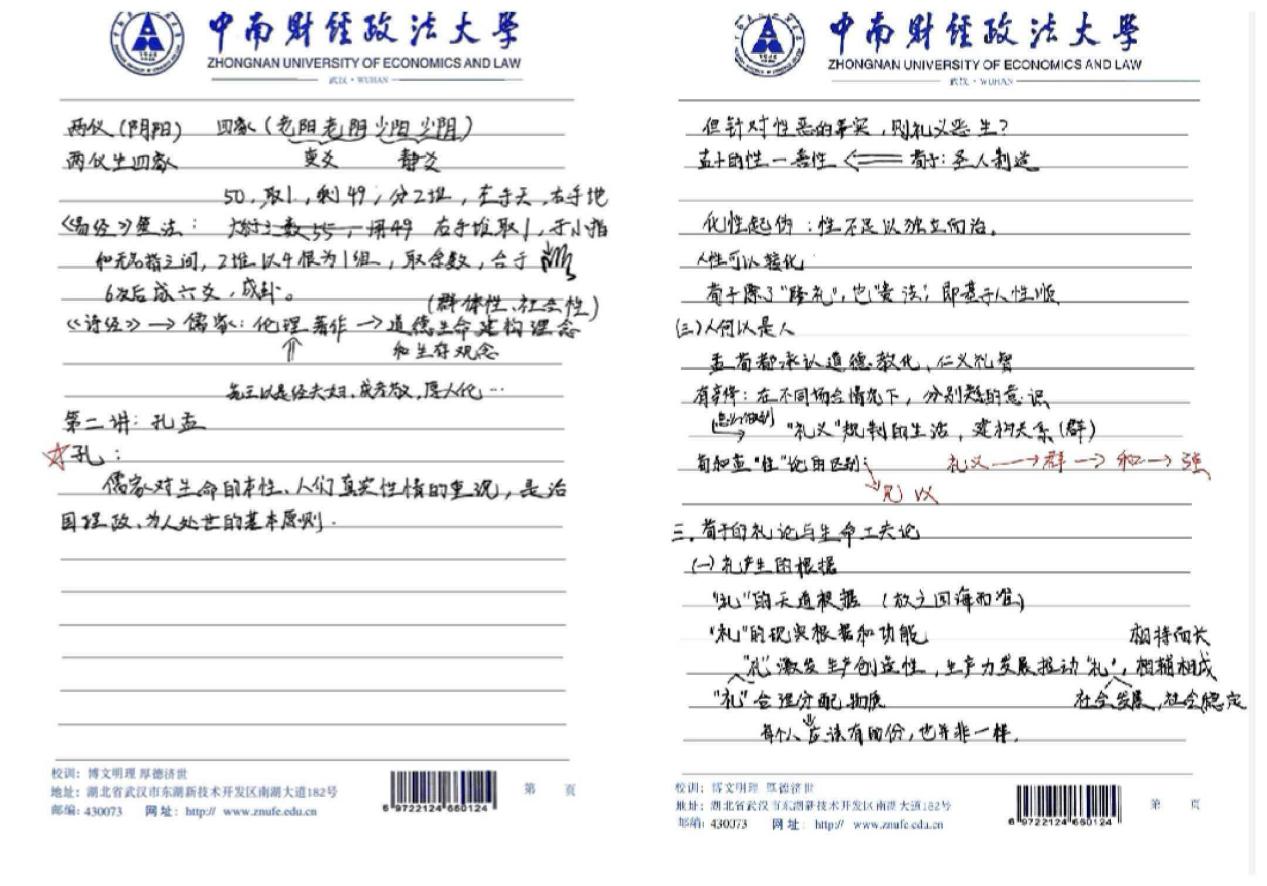 中南财经政法大学
ZHONGNAN UNIVERSITY OF ECONOMICS AND LAW
武汉·WUHAN
两仪(阴阳) 四象(老阳老阴少阳少阴)
两仪生四象 变爻 静爻
50,取1,剩49;分2堆,左手天,右手地
《易经》筮法: 大衍之数55,用49 右手堆取1,于小指
和无名指之间,2堆以4根为1组,取余数,合于
6次后成六爻,成卦。
(群体性、社会性)
《诗经》→儒家:伦理著作→道德生命建构理念
和生存观念
先王以是经夫妇,成孝敬,厚人伦…
第二讲:孔孟
☆孔:
儒家对生命的本性、人们真实性情的重视,是治
国理政、为人处世的基本原则.
校训:博文明理 厚德济世
地址:湖北省武汉市东湖新技术开发区南湖大道182号
邮编:430073 网址:http:// www.znufe.edu.cn
6 9722124 660124
第 页
中南财经政法大学
ZHONGNAN UNIVERSITY OF ECONOMICS AND LAW
武汉·WUHAN
但针对性恶的事实,则礼义恶生?
孟子的性—善性 ⇐ 荀子:圣人制造
化性起伪:性不足以独立而治。
人性可以转化
荀子除了"隆礼",也"重法",即基于人性顺
(三)人何以是人
孟荀都承认道德教化、仁义礼智
有辛辨:在不同场合情况下,分别疑的意识
"礼义"规制的生活,建构关系(群)
荀和孟"性"论的区别: 礼义→群→和→强
见 以
三.荀子的礼论与生命工夫论
(一)礼产生的根据
"礼"的天道根据 (放之四海而准)
"礼"的现实根据和功能 相持而长
"礼"激发生产创造性,生产力发展推动"礼",相辅相成
"礼"合理分配物质 社会发展,社会稳定
每个人应该有的份,也并非一样.
校训:博文明理 厚德济世
地址:湖北省武汉市东湖新技术开发区南湖大道182号
邮编:430073 网址:http:// www.znufe.edu.cn
6 9722124 660124
第 页